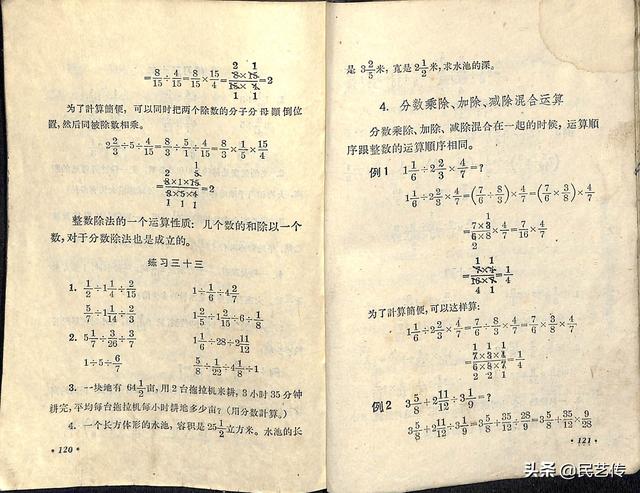 =8/15÷4/15=8/15×15/4=8×15/15×4=2
为了計算簡便，可以同时把两个除数的分子分母顚倒位
置，然后同被除数相乘。
2 2/3÷5÷4/15=8/3÷5/1÷4/15=8/3×1/5×15/4
=8×1×15/3×5×4=2
整数除法的一个运算性质：几个数的和除以一个
数，对于分数除法也是成立的。
练习三十三
1. 1/2÷1 1/4÷2/15 1÷1/6÷4 2/7
5/7÷1 1/14÷2/3 1 2/5÷1 2/15÷6÷1/8
2. 5 1/7÷3/26÷3/7 1 1/6÷28÷2 11/12
1÷5÷6/7 5/8÷1/22÷4 1/8÷1
3. 一块地有 64 1/2亩，用2台拖拉机来耕，3小时35分钟
耕完，平均每台拖拉机每小时耕地多少亩？（用分数計算。）
4. 一个长方体形的水池，容积是25 1/2立方米。水池的长
·120·
是 3 2/5米，寬是2 1/2米，求水池的深。
4. 分数乘除、加除、减除混合运算
分数乘除、加除、减除混合在一起的时候，运算順
序跟整数的运算順序相同。
例1 1 1/6÷2 2/3×4/7=?
1 1/6÷2 2/3×4/7=(7/6÷8/3)×4/7=(7/6×3/8)×4/7
=7×3/6×8×4/7=7/16×4/7
=7×4/16×7=1/4
为了計算簡便，可以这样算：
1 1/6÷2 2/3×4/7=7/6÷8/3×4/7=7/6×3/8×4/7
=7×3×4/6×8×7=1/4
例2 3 5/8+2 11/12÷3 1/9=?
3 5/8+2 11/12÷3 1/9=3 5/8+35/12÷28/9=3 5/8+35/12×9/28
·121·
头条 @民艺传